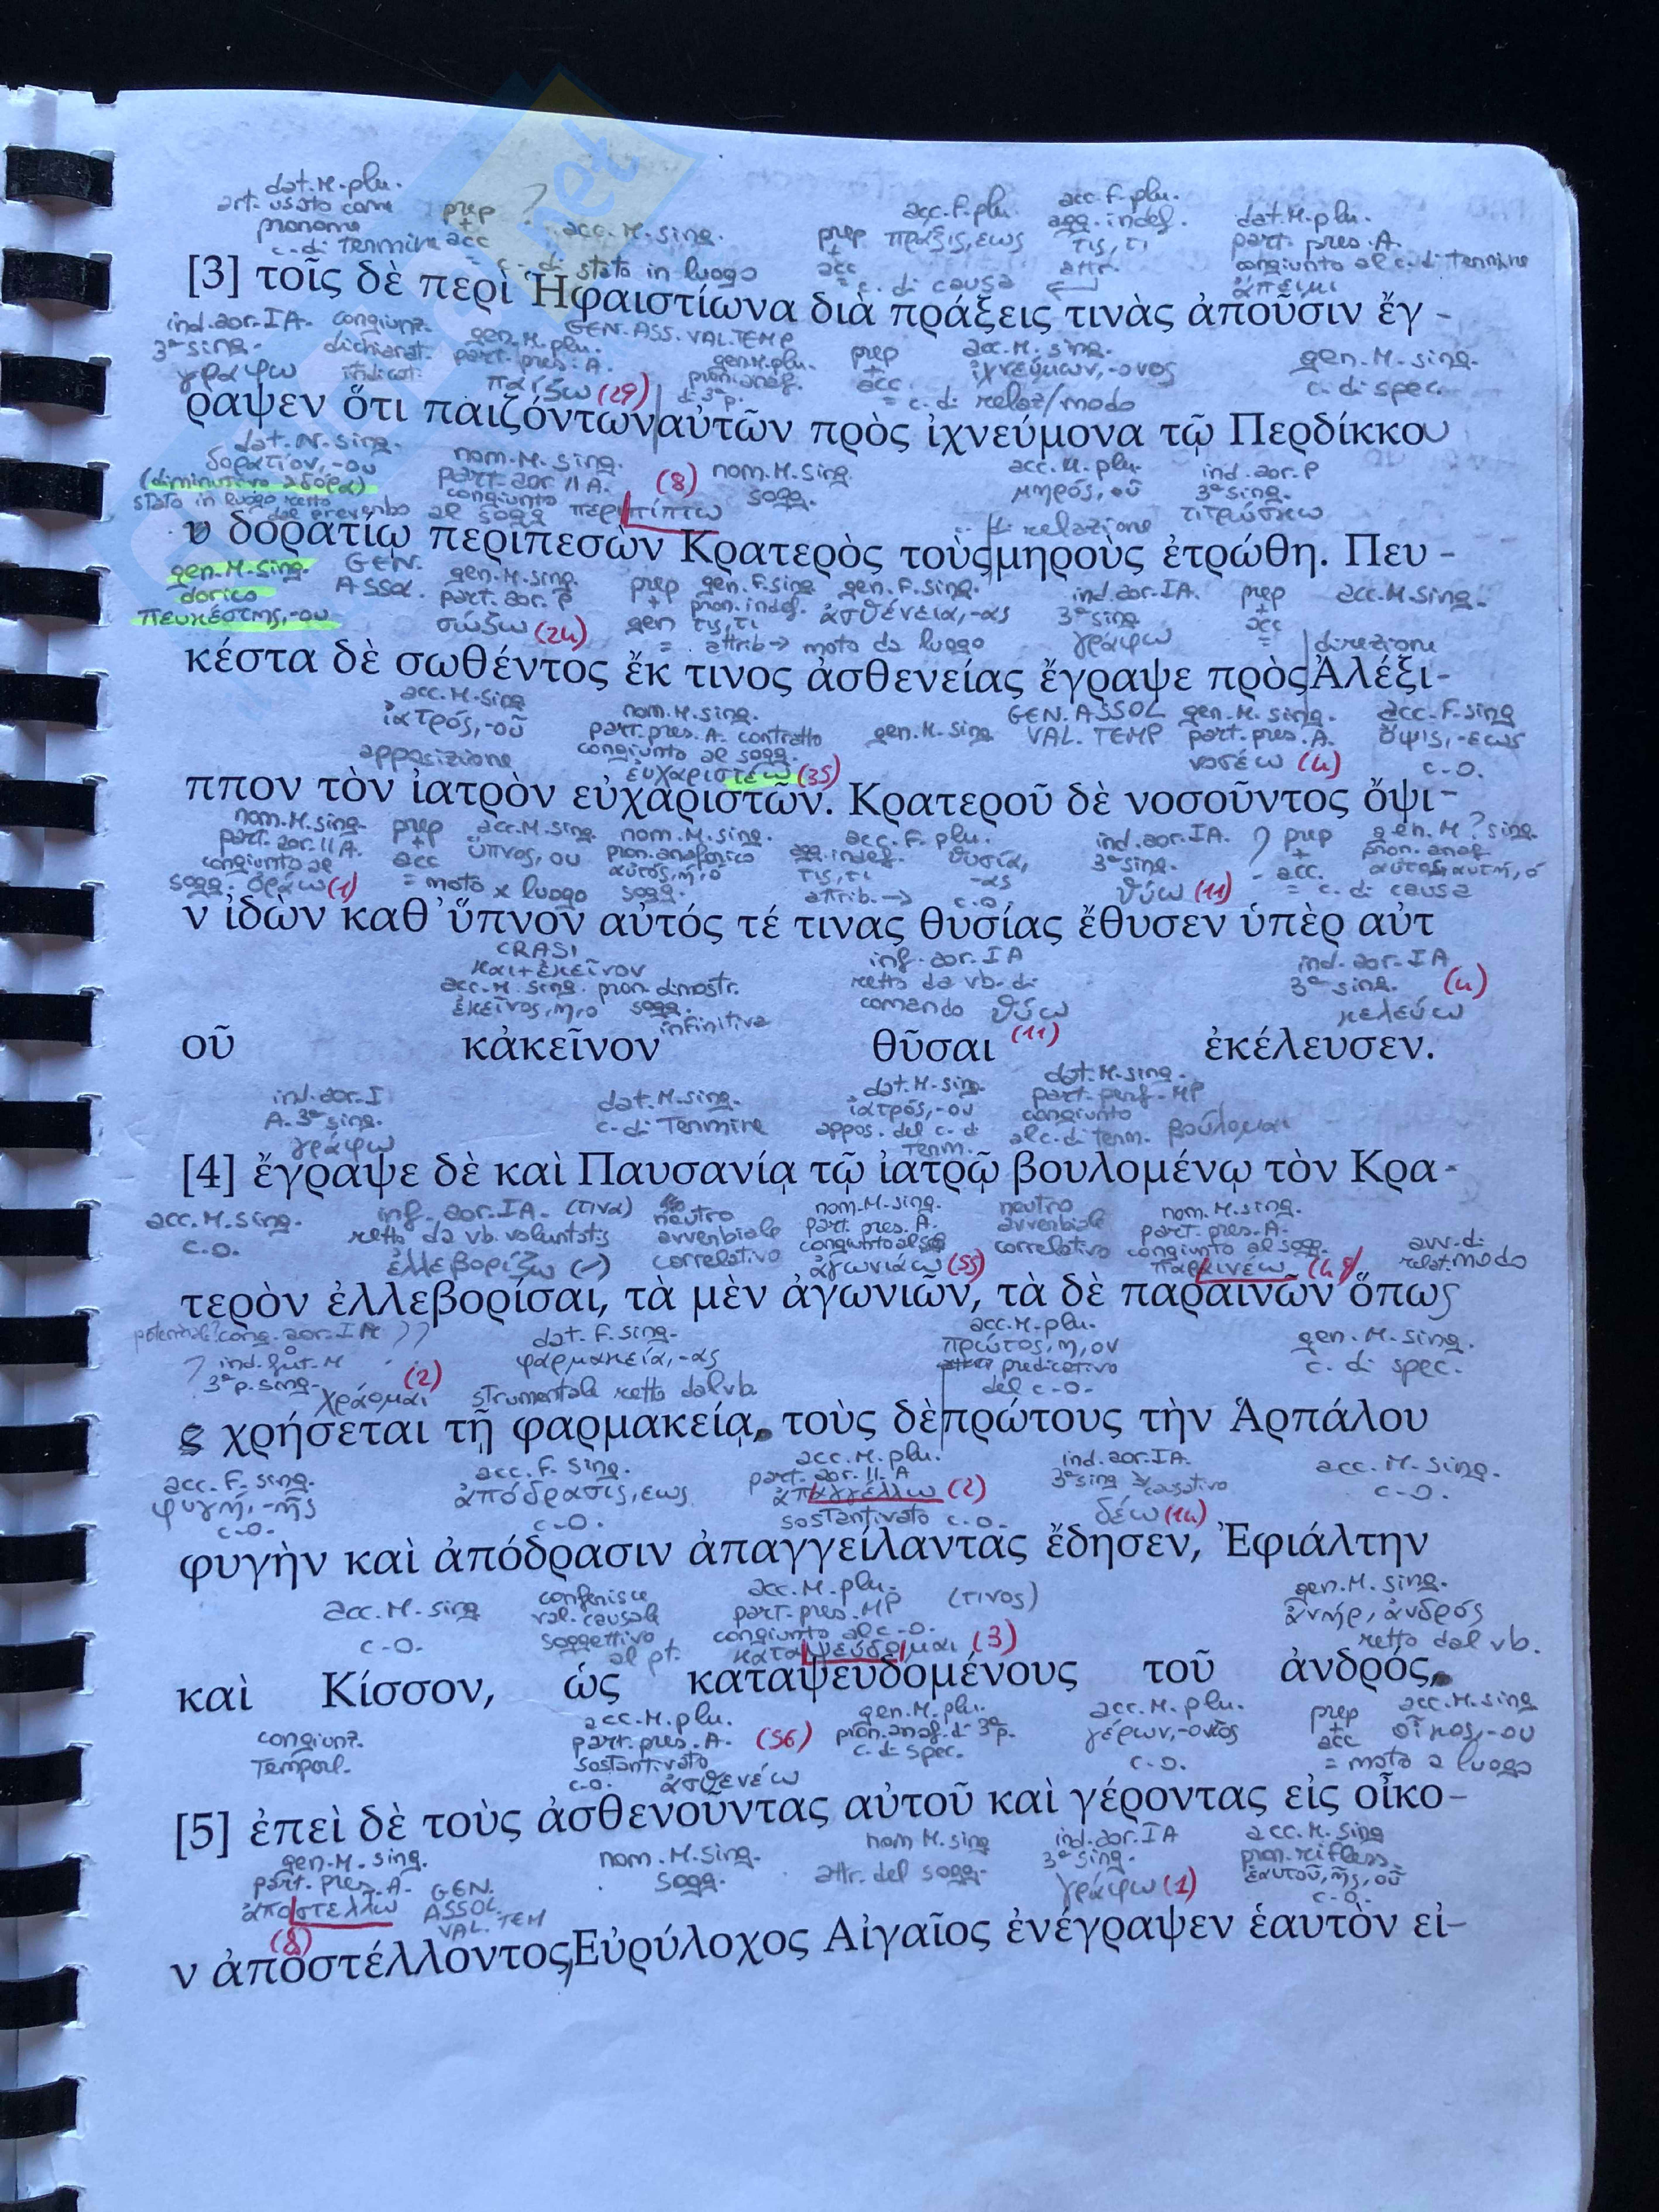 dat. M. plu.
art. usato come prep acc. M. sing. acc. F. plu. acc. F. plu. dat. M. plu.
pronome + prep πρᾶξις, εως agg. indef. part. pres. A.
c. di termine acc = c. di stato in luogo acc = c. di causa τις, τι attr. congiunto al c. di termine ἄπειμι
[3] τοῖς δὲ περὶ Ἡφαιστίωνα διὰ πράξεις τινὰς ἀποῦσιν ἔγ -
ind. aor. IA. congiunz. gen. M. plu. GEN. ASS. VAL. TEMP acc. M. sing.
3ª sing. dichiarat. part. pres. A. gen. M. plu. prep ἰχνεύμων, -ονος gen. M. sing.
γράφω indicat. παίζω (29) pron. anaf. di 3ª p. acc. = c. di relaz/modo c. di spec.
ραψεν ὅτι παιζόντων αὐτῶν πρὸς ἰχνεύμονα τῷ Περδίκκου
dat. N. sing.
δοράτιον, -ου nom. M. sing. acc. M. plu. ind. aor. P
(diminutivo δόρα) part. aor. II A. (8) nom. M. sing. μηρός, οῦ 3ª sing.
stato in luogo retto dal preverbo congiunto al sogg περιπίπτω sogg. di relazione τιτρώσκω
υ δορατίῳ περιπεσὼν Κρατερὸς τοὺς μηροὺς ἐτρώθη. Πευ -
gen. M. sing. GEN. gen. M. sing. prep gen. F. sing gen. F. sing. ind. aor. IA. prep acc. M. sing.
dorico ASSOL. part. aor. P + pron. indef. ἀσθένεια, -ας 3ª sing + acc
πευκέστης, -ου σώζω (24) gen τις, τι = attrib → moto da luogo γράφω = direzione
κέστα δὲ σωθέντος ἔκ τινος ἀσθενείας ἔγραψε πρὸς Ἀλέξι-
acc. M. sing nom. M. sing. GEN. ASSOL gen. M. sing. acc. F. sing
ἰατρός, -οῦ part. pres. A. contratto gen. M. sing VAL. TEMP part. pres. A. ὄψις, -εως
apposizione congiunto al sogg. εὐχαριστέω (35) νοσέω (4) c. O.
ππον τὸν ἰατρὸν εὐχαριστῶν. Κρατεροῦ δὲ νοσοῦντος ὄψι-
nom. M. sing. prep acc. M. sing nom. M. sing. acc. F. plu. ind. aor. IA. ? prep gen. M? sing.
part. aor. II A. + ὕπνος, ου pron. anaforico agg. indef. θυσία, 3ª sing. + pron. anaf.
congiunto al acc αὐτός, ή, ό τις, τι -ας acc.
sogg. ὁράω (1) = moto x luogo sogg. attrib. → c. O. θύω (11) = c. di causa
ν ἰδὼν καθ᾽ ὕπνον αὐτός τέ τινας θυσίας ἔθυσεν ὑπὲρ αὐτ
CRASI
και + ἐκεῖνον inf. aor. IA ind. aor. IA
acc. M. sing. pron. dimostr. retto da vb. di 3ª sing. (4)
ἐκεῖνος, η, ο sogg. infinitiva comando θύω κελεύω
οῦ κἀκεῖνον θῦσαι (11) ἐκέλευσεν.
ind. aor. I dat. M. sing. dat. M. sing. dat. M. sing.
A. 3ª sing. c. di Termine ἰατρός, -ου part. perf. MP
γράφω appos. del c. di Term. congiunto al c. di term. βούλομαι
[4] ἔγραψε δὲ καὶ Παυσανίᾳ τῷ ἰατρῷ βουλομένῳ τὸν Κρα-
acc. M. sing. inf. aor. IA. (τινα) neutro nom. M. sing. neutro nom. M. sing.
c. O. retto da vb. voluntatis avverbiale part. pres. A. avverbiale part. pres. A. avv. di
ἐλλεβορίζω (-) correlativo congiunto al sogg ἀγωνιάω (55) correlativo congiunto al sogg. relat. modo
τερὸν ἐλλεβορίσαι, τὰ μὲν ἀγωνιῶν, τὰ δὲ παραινῶν ὅπως
potenziale? cong. aor. I ?? dat. F. sing. acc. M. plu.
? ind. fut. M φαρμακεία, -ας πρῶτος, η, ον gen. M. sing.
3ª p. sing. χράομαι (2) strumentale retto dal vb. predicativo del c. O. c. di spec.
ς χρήσεται τῇ φαρμακείᾳ, τοὺς δὲ πρώτους τὴν Ἁρπάλου
acc. F. sing. acc. F. sing. acc. M. plu. ind. aor. IA.
φυγή, -ῆς ἀπόδρασις, εως part. aor. II. A 3ª sing causativo acc. M. sing.
c. O. c. O. ἀπαγγέλλω (2) sostantivato c. O. δέω (14) c. O.
φυγὴν καὶ ἀπόδρασιν ἀπαγγείλαντας ἔδησεν, Ἐφιάλτην
conferisce acc. M. plu. (τινος) gen. M. sing.
acc. M. sing val. causale part. pres. MP ἀνήρ, ἀνδρός
c. O. soggettivo al pt. congiunto al c. O. καταψεύδομαι (3) retto dal vb.
καὶ Κίσσον, ὡς καταψευδομένους τοῦ ἀνδρός,
acc. M. plu. gen. M. plu. acc. M. plu. prep acc. M. sing
congiunz. part. pres. A. (56) pron. anaf. di 3ª p. γέρων, -οντος + acc οἶκος, -ου
Temporal. sostantivato c. O. ἀσθενέω c. di spec. c. O. = moto a luogo
[5] ἐπεὶ δὲ τοὺς ἀσθενοῦντας αὐτοῦ καὶ γέροντας εἰς οἶκο-
gen. M. sing. nom. M. sing. nom M. sing ind. aor. IA acc. M. sing
part. pres. A. GEN. sogg. attr. del sogg. 3ª sing. pron. rifless
ἀποστέλλω ASSOL. VAL. TEM γράφω (1) ἑαυτοῦ, ῆς, οῦ c. O.
(8)
ν ἀποστέλλοντος, Εὐρύλοχος Αἰγαῖος ἐνέγραψεν ἑαυτὸν εἰ-